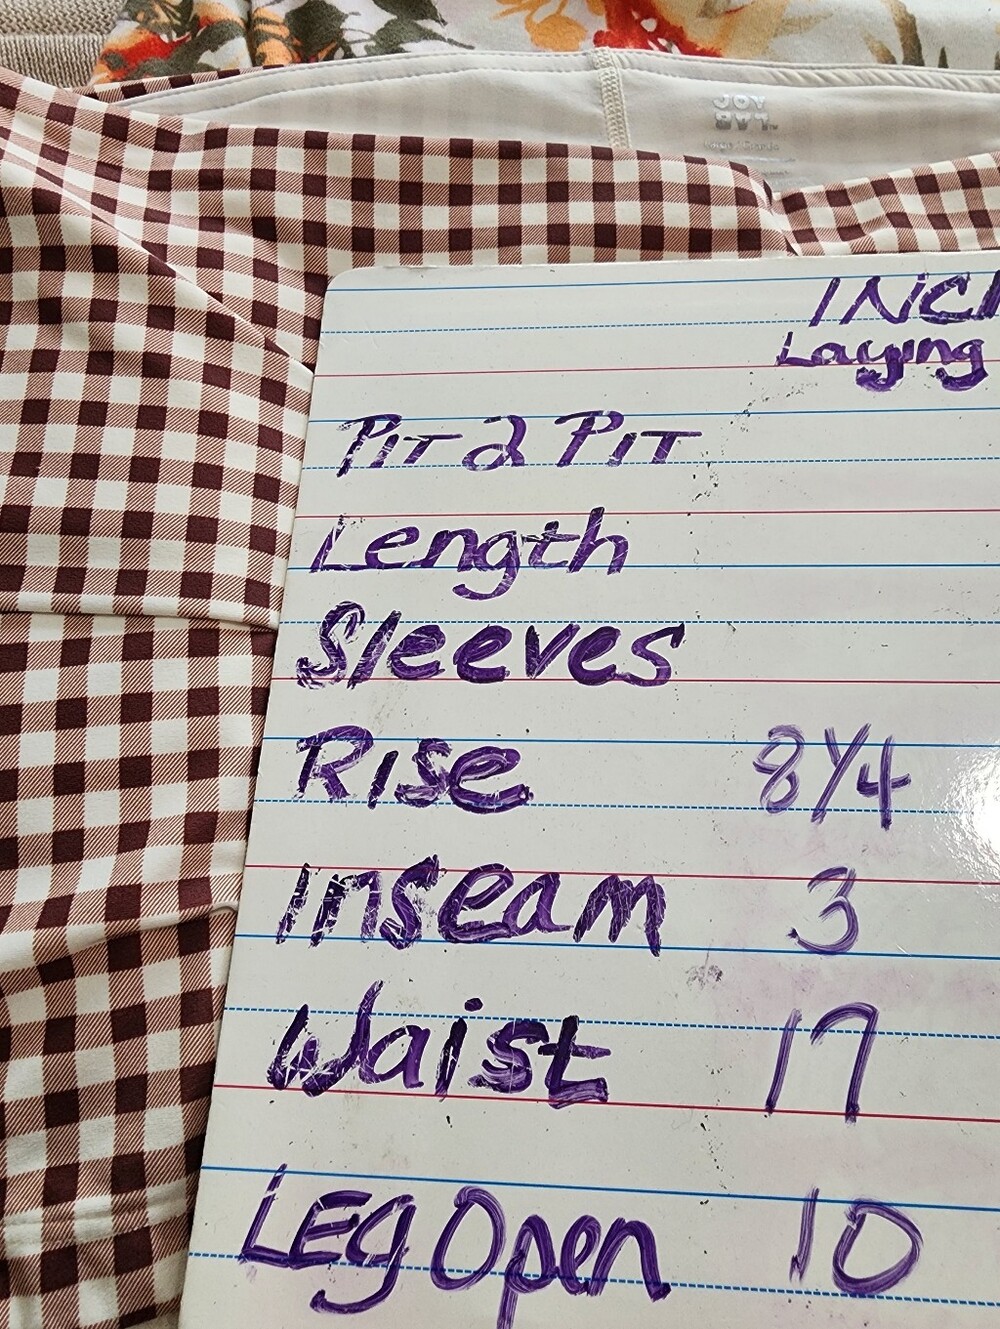 JOY
LAB™
Large / Grande
INCH
Laying
PIT 2 PIT
Length
Sleeves
Rise 8 1/4
Inseam 3
Waist 17
LEg Open 10